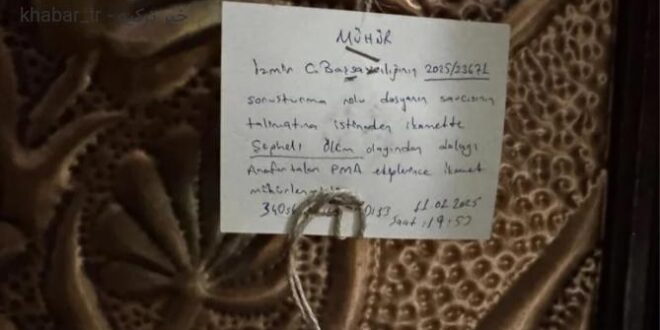 khabar_tr - خبر ترکیه
MÜHÜR
İzmir C. Başsavcılığının 2025/23671
soruşturma nolu dosyanın savcısının
talimatına istinaden ikamette
Şüpheli Ölüm olayından dolayı
Anafartalar PMA ekiplerince ikamet
11.02.2025
Saat : 19:53